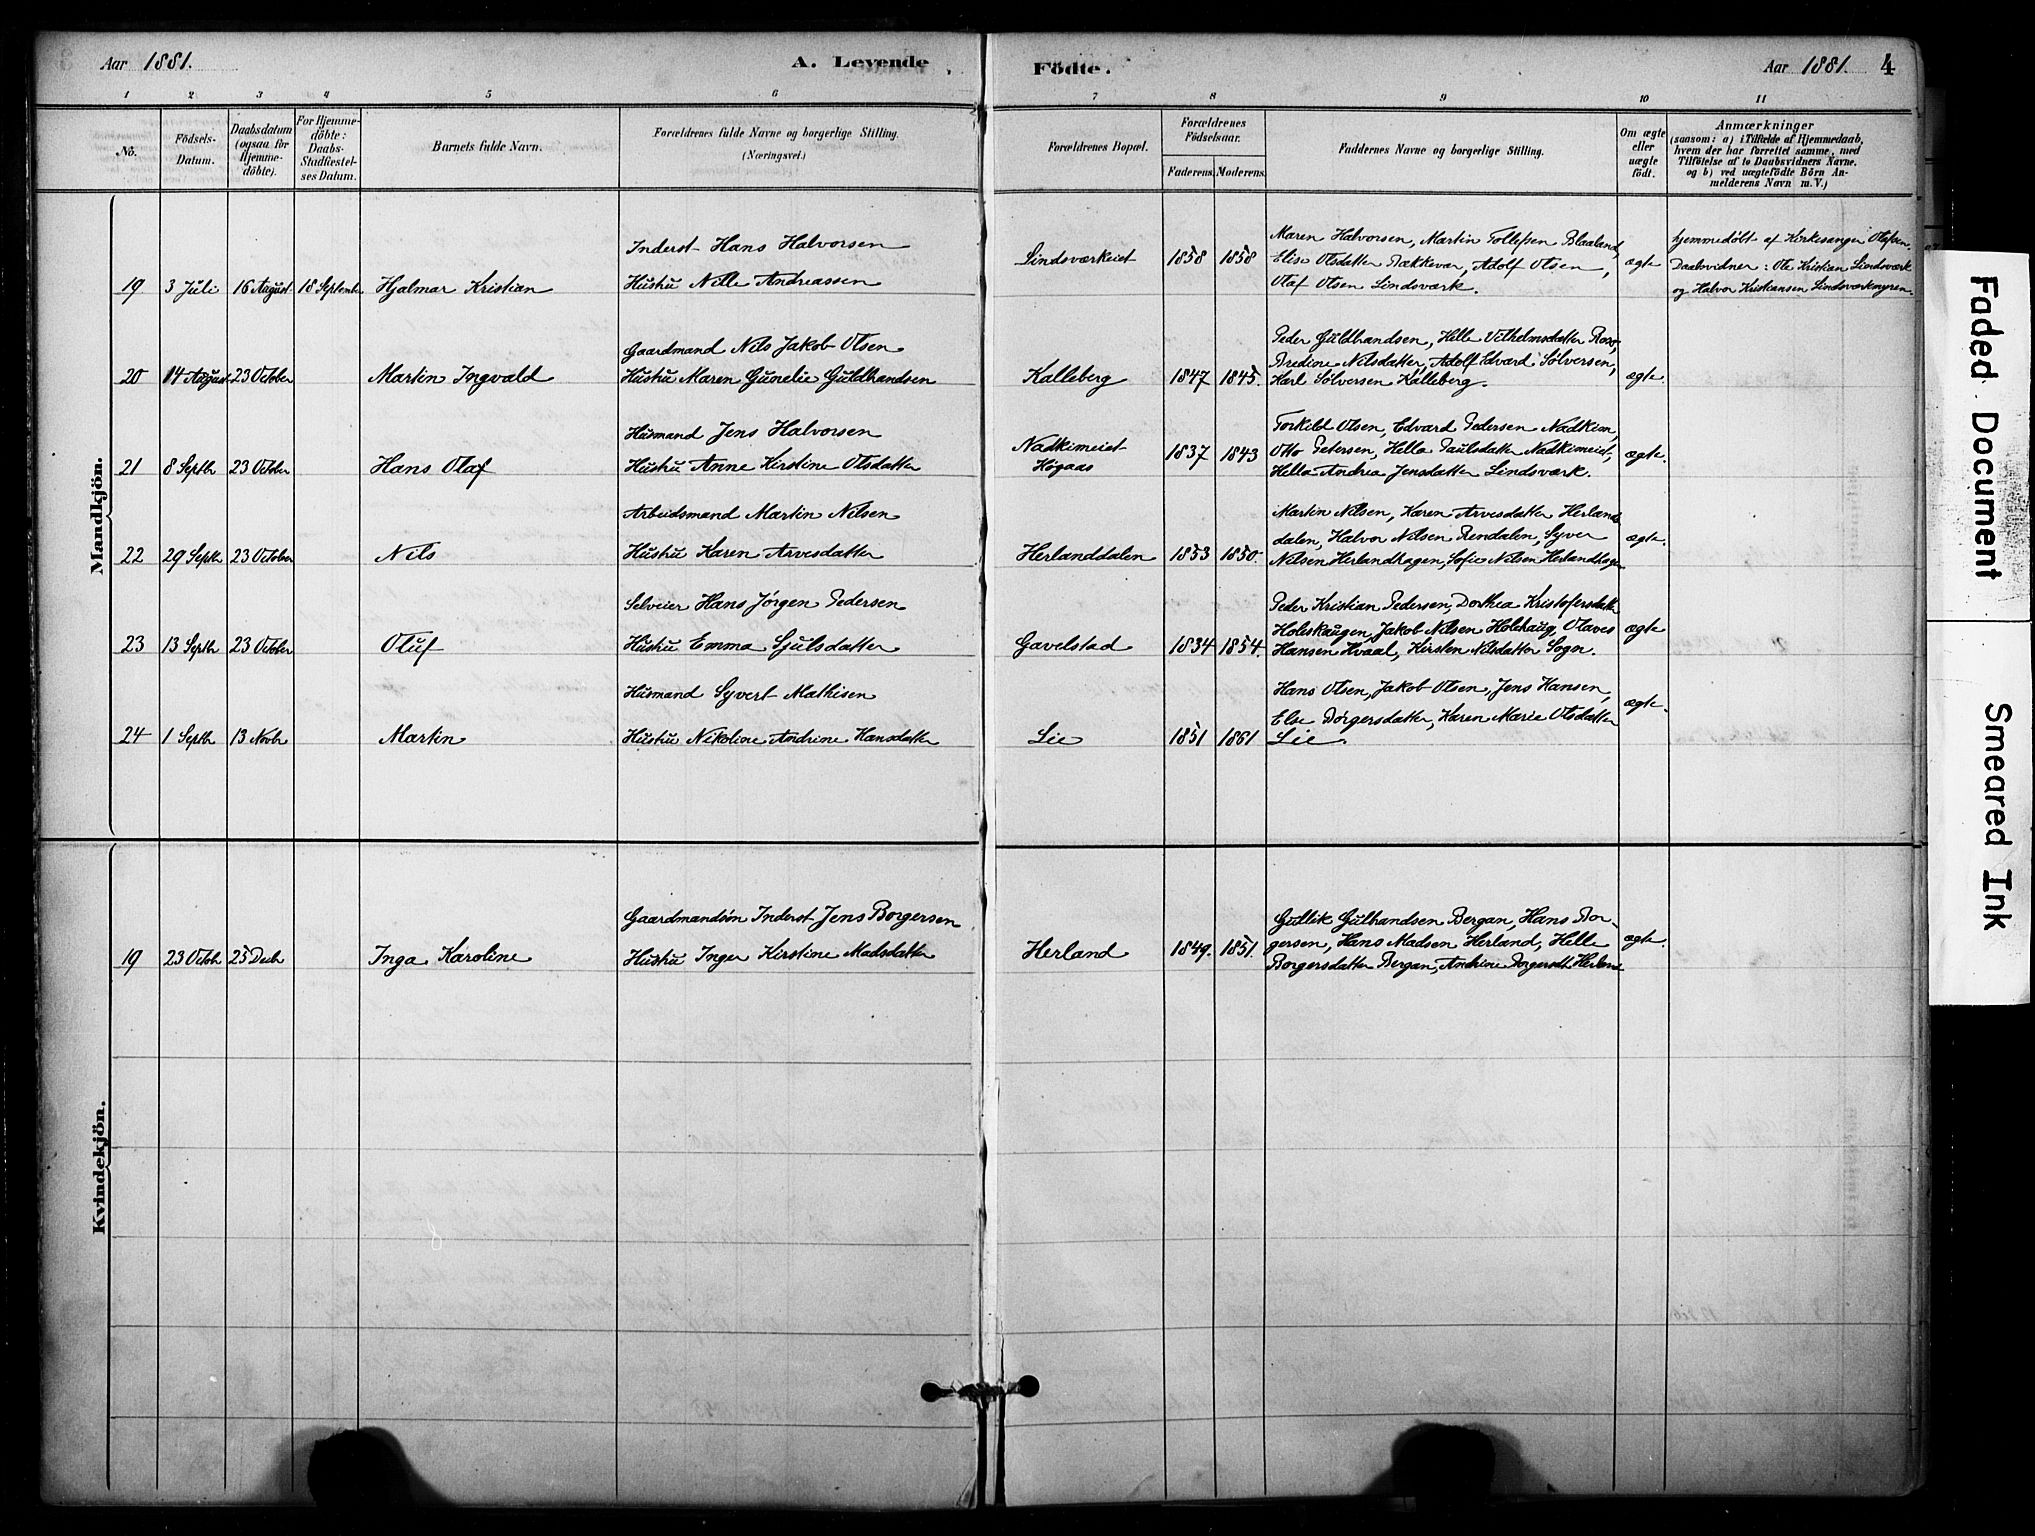 Aar 1881.
A. Levende
Födte.
Aar 1881. 4
1 2 3 4 5 6 7 8 9 10 11
No.
Födsels-Datum.
Daabsdatum (ogsaa for Hjemme-döbte).
For Hjemme-döbte: Daabs-Stadfæstel-ses Datum.
Barnets fulde Navn.
Forældrenes fulde Navne og borgerlige Stilling.
(Næringsvei.)
Forældrenes Bopæl.
Forældrenes Födselsaar.
Faderens. Moderens.
Faddernes Navne og borgerlige Stilling.
Om ægte eller uægte födt.
Anmærkninger
(saasom: a) i Tilfælde af Hjemmedaab,
hvem der har forrettet samme, med
Tilföielse af to Daabsvidners Navne,
og b) ved uægtefödte Börn An-
melderens Navn m. V.)
Mandkjön.
19 3 Juli 16 August 18 Septembr Hjalmar Kristian
Inderst Hans Halvorsen
Hustru Nille Andreassen
Lindsværkeiet 1858 1858
Maren Halvorsen, Martin Tollefsen Blaaland,
Elise Olsdatter Bækkevar, Adolf Olsen,
Olaf Olsen Lindsværk.
ægte
hjemmedøbt af Kirkesanger Olafsen.
Daabsvidner: Ole Kristian Lindsværk
og Halvor Kristiansen Lindsværkmyren.
20 14 August 23 October Martin Ingvald
Gaardmand Nils Jakob Olsen
Hustru Maren Gunelie Guldbrandsen
Kalleberg 1847 1845.
Peder Guldbrandsen, Helle Vilhelmsdatter
Bredine Nilsdatter, Adolf Edvard Sølversen,
Karl Sølversen Kalleberg.
ægte.
21 8 Septbr 23 October Hans Olaf
Husmand Jens Halvorsen
Hustru Anne Kirstine Olsdatter
Nadkimeiet
Høgaas
1837 1843
Torkild Olsen, Edvard Pedersen Nadkim,
Otto Petersen, Hella Paulsdatter Nadkimeiet,
Hella Andrea Jensdatter Lindsværk.
ægte.
22 29 Septbr 23 October Nils
Arbeidsmand Martin Nilsen
Hustru Karen Arvesdatter
Herlanddalen 1853 1850.
Martin Nilsen, Karen Arvesdatter Herland-
dalen, Halvor Nilsen Rendalen, Syver
Nilsen Herlandhagen, Sofie Nilsen Herlandhagen
ægte.
23 13 Septbr 23 October Oluf
Selveier Hans Jørgen Pedersen
Hustru Emma Sjulsdatter
Gavelstad 1834 1854.
Peder Kristian Pedersen, Dorthea Kristofersdatter
Holeskaugen, Jakob Nilsen Holehaug, Olaves
Hansen Hvaal, Kirsten Nilsdatter Sogn.
ægte
24 1 Septbr 13 Novbr Martin
Husmand Syvert Mathisen
Hustru Nikoline Andrine Hansdatter
Lie 1851 1861
Hans Olsen, Jakob Olsen, Jens Hansen,
Else Børgersdatter, Karen Marie Olsdatter
Lie.
ægte.
Kvindekjön.
19 23 Octbr 25 Decbr Inga Karoline
Gaardmandsøn Inderst Jens Borgersen
Hustru Inger Kirstine Madsdatter
Herland 1849. 1851.
Gullik Gulbrandsen Bergan, Hans Bor-
gersen, Hans Madsen Herland, Helle
Borgersdatter Bergan, Andrine Borgersdt Herland
ægte.
Faded Document
Smeared Ink